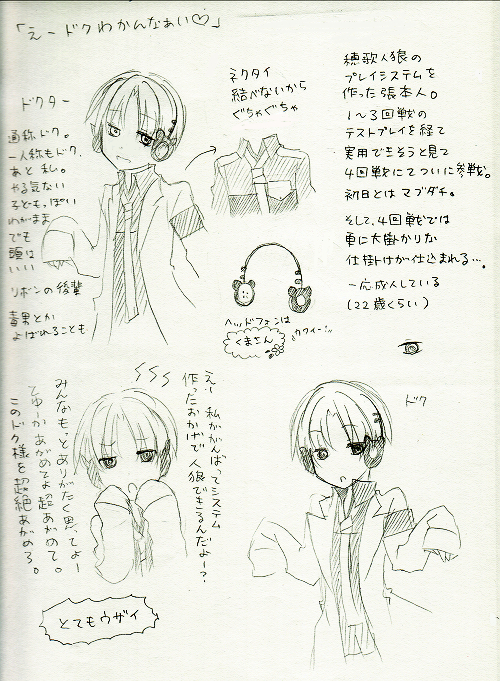 「えードクわかんなぁい♡」
ドクター
通称ドク。
一人称もドク、
あと私。
やる気ない
子どもっぽい
わがまま
でも
頭は
いい
リボンの後輩
毒男とか
よばれることも
ネクタイ
結べないから
ぐちゃぐちゃ
ヘッドフォンは
くまさん
カワイー
穂歌人狼の
プレイシステムを
作った張本人。
1〜3回戦の
テストプレイを経て
実用できそうと見て
4回戦にてついに参戦。
初日とはマブダチ。
そして、4回戦では
更に大掛かりな
仕掛けが仕込まれる…。
一応成人している
(22歳くらい)
えー私ががんばってシステム
作ったおかげで人狼できるんだよー?
みんなもっとありがたく思ってよー
てゆーかあがめてよ超あがめて。
このドク様を超絶あがめろ。
とてもウザイ
ドク